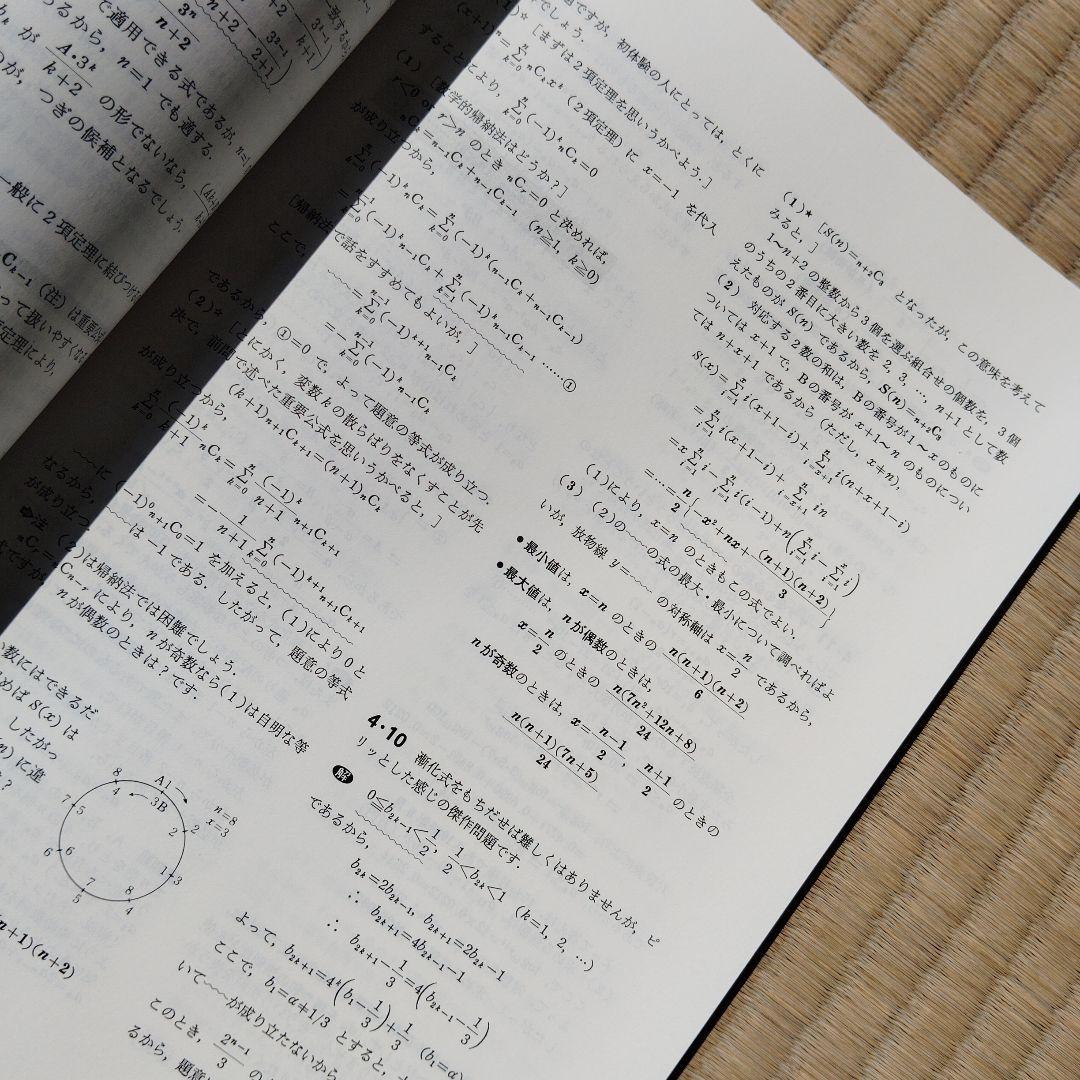 3ⁿ/(n+2)
で適用できる式であるが,
るから, n=1 でも適する.
が A・3ᵏ/(k+2) の形でないなら,
のが, つぎの候補となるでしょう.
一般に2項定理に結びつける
って扱いやすくな
定理により,
題ですが, 初体験の人にとっては, とくに
でしょう.
[まずは2項定理を思いうかべよう.]
=Σ[k=0→n] ₙCₖxᵏ (2項定理) に x=−1 を代入
することにより, Σ[k=0→n](−1)ᵏₙCₖ=0
(1) [数学的帰納法はどうか?]
r>n のとき ₙCᵣ=0 と決めれば,
ₙCₖ=ₙ₋₁Cₖ+ₙ₋₁Cₖ₋₁ (n≧1, k≧0)
が成り立つから,
Σ[k=0→n](−1)ᵏₙCₖ=Σ[k=0→n](−1)ᵏ(ₙ₋₁Cₖ+ₙ₋₁Cₖ₋₁)
=Σ[k=0→n](−1)ᵏₙ₋₁Cₖ+Σ[k=0→n](−1)ᵏₙ₋₁Cₖ₋₁ ……①
[帰納法で話をすすめてもよいが, ]
ここで,
=Σ[k=0→n−1](−1)ᵏ⁺¹ₙ₋₁Cₖ
=−Σ[k=0→n−1](−1)ᵏₙ₋₁Cₖ
であるから, ①=0 で, よって題意の等式が成り立つ.
(2)* [とにかく, 変数kの散らばりをなくすことが先
決で, 前問で述べた重要公式を思いうかべると, ]
(k+1)ₙ₊₁Cₖ₊₁=(n+1)ₙCₖ
が成り立つから,
Σ[k=0→n](−1)ᵏ/(k+1) ₙCₖ=Σ[k=0→n](−1)ᵏ/(n+1) ₙ₊₁Cₖ₊₁
=−1/(n+1) Σ[k=0→n](−1)ᵏ⁺¹ₙ₊₁Cₖ₊₁
に (−1)⁰ₙ₊₁C₀=1 を加えると, (1)により0と
なるから, は−1である. したがって, 題意の等式
が成り立つ
注 (2)は帰納法では困難でしょう.
ₙCᵣ=ₙCₙ₋ᵣにより, nが奇数なら(1)は自明な等
式ですが nが偶数のときは?です.
数にはできるだ
めば S(x) は
したがっ
(n)に違
?
A1
3B
n=8
x=3
8
4
7
5
2
2
6
6
1
3
7
5
8
4
n+1)(n+2)
(1)* [S(n)=ₙ₊₂C₃ となったが, この意味を考えて
みると, ]
1~n+2 の整数から3個を選ぶ組合せの個数を, 3個
のうちの2番目に大きい数を 2, 3, …, n+1 として数
えたものが S(n) であるから, S(n)=ₙ₊₂C₃
(2) 対応する2数の和は, Bの番号が1~xのものに
ついては x+1 で, Bの番号が x+1~n のものについ
ては n+x+1 であるから (ただし, x≠n),
S(x)=Σ[i=1→x] i(x+1−i)+Σ[i=x+1→n] i(n+x+1−i)
=Σ[i=1→n] i(x+1−i)+Σ[i=x+1→n] in
=xΣ[i=1→n] i−Σ[i=1→n] i(i−1)+n(Σ[i=1→n] i−Σ[i=1→x] i)
=……=n/2{−x²+nx+(n+1)(n+2)/3}
(1)により, x=n のときもこの式でよい.
(3) (2)の の式の最大・最小について調べればよ
いが, 放物線 y= の対称軸は x=n/2 であるから,
・最小値は, x=n のときの n(n+1)(n+2)/6
・最大値は, nが偶数のときは,
x=n/2 のときの n(7n²+12n+8)/24
nが奇数のときは, x=(n−1)/2, (n+1)/2 のときの
n(n+1)(7n+5)/24
4・10 漸化式をもちだせば難しくはありませんが, ピ
リッとした感じの傑作問題です.
解 0≦b₂ₖ₋₁<1/2, 1/2<b₂ₖ<1 (k=1, 2, …)
であるから,
b₂ₖ=2b₂ₖ₋₁, b₂ₖ₊₁=2b₂ₖ−1
∴ b₂ₖ₊₁=4b₂ₖ₋₁−1
∴ b₂ₖ₊₁−1/3=4(b₂ₖ₋₁−1/3)
よって, b₂ₖ₊₁=4ᵏ(b₁−1/3)+1/3 (b₁=α)
ここで, b₁=α≠1/3 とすると,
いて が成り立たないから
このとき, 2ⁿ⁻¹/3 の
るから, 題意